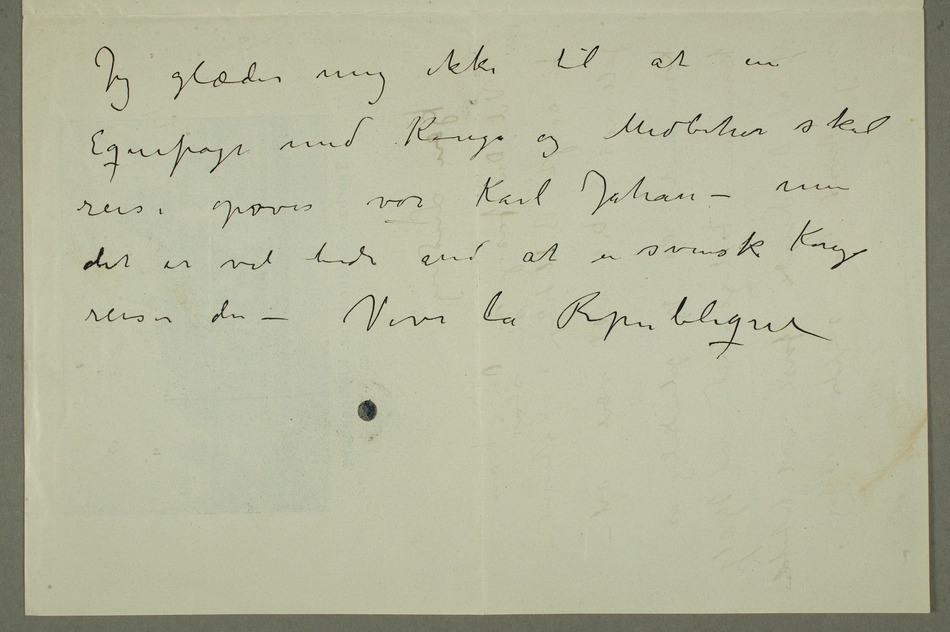 Jeg glæder mig ikke til at en
Equipage med Konge og Medbehør skal
reise opover vor Karl Johan – men
det er vel bedre end at en svensk Konge
reiser der – Vive la Republique